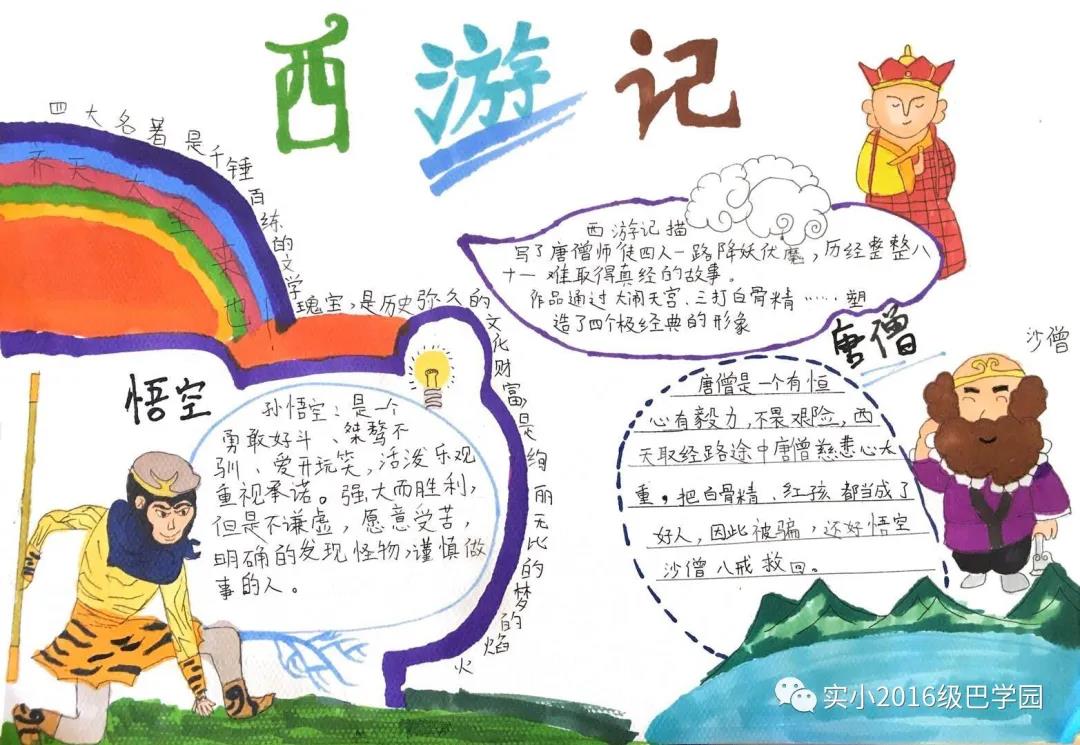 西游记
四大名著是千锤百练的文学瑰宝,是历史弥久的文化财富,是绚丽无比的梦的焰火
齐天大圣来也
西游记描
写了唐僧师徒四人一路降妖伏魔,历经整整八
十一难取得真经的故事。
作品通过大闹天宫、三打白骨精……塑
造了四个极经典的形象
唐僧
沙僧
悟空
孙悟空:是一个
勇敢好斗、桀骜不
驯、爱开玩笑,活泼乐观
重视承诺。强大而胜利,
但是不谦虚,愿意受苦,
明确的发现怪物,谨慎做
事的人。
唐僧是一个有恒
心有毅力,不畏艰险,西
天取经路途中唐僧慈悲心太
重,把白骨精、红孩都当成了
好人,因此被骗,还好悟空
沙僧八戒救回。
实小2016级巴学园